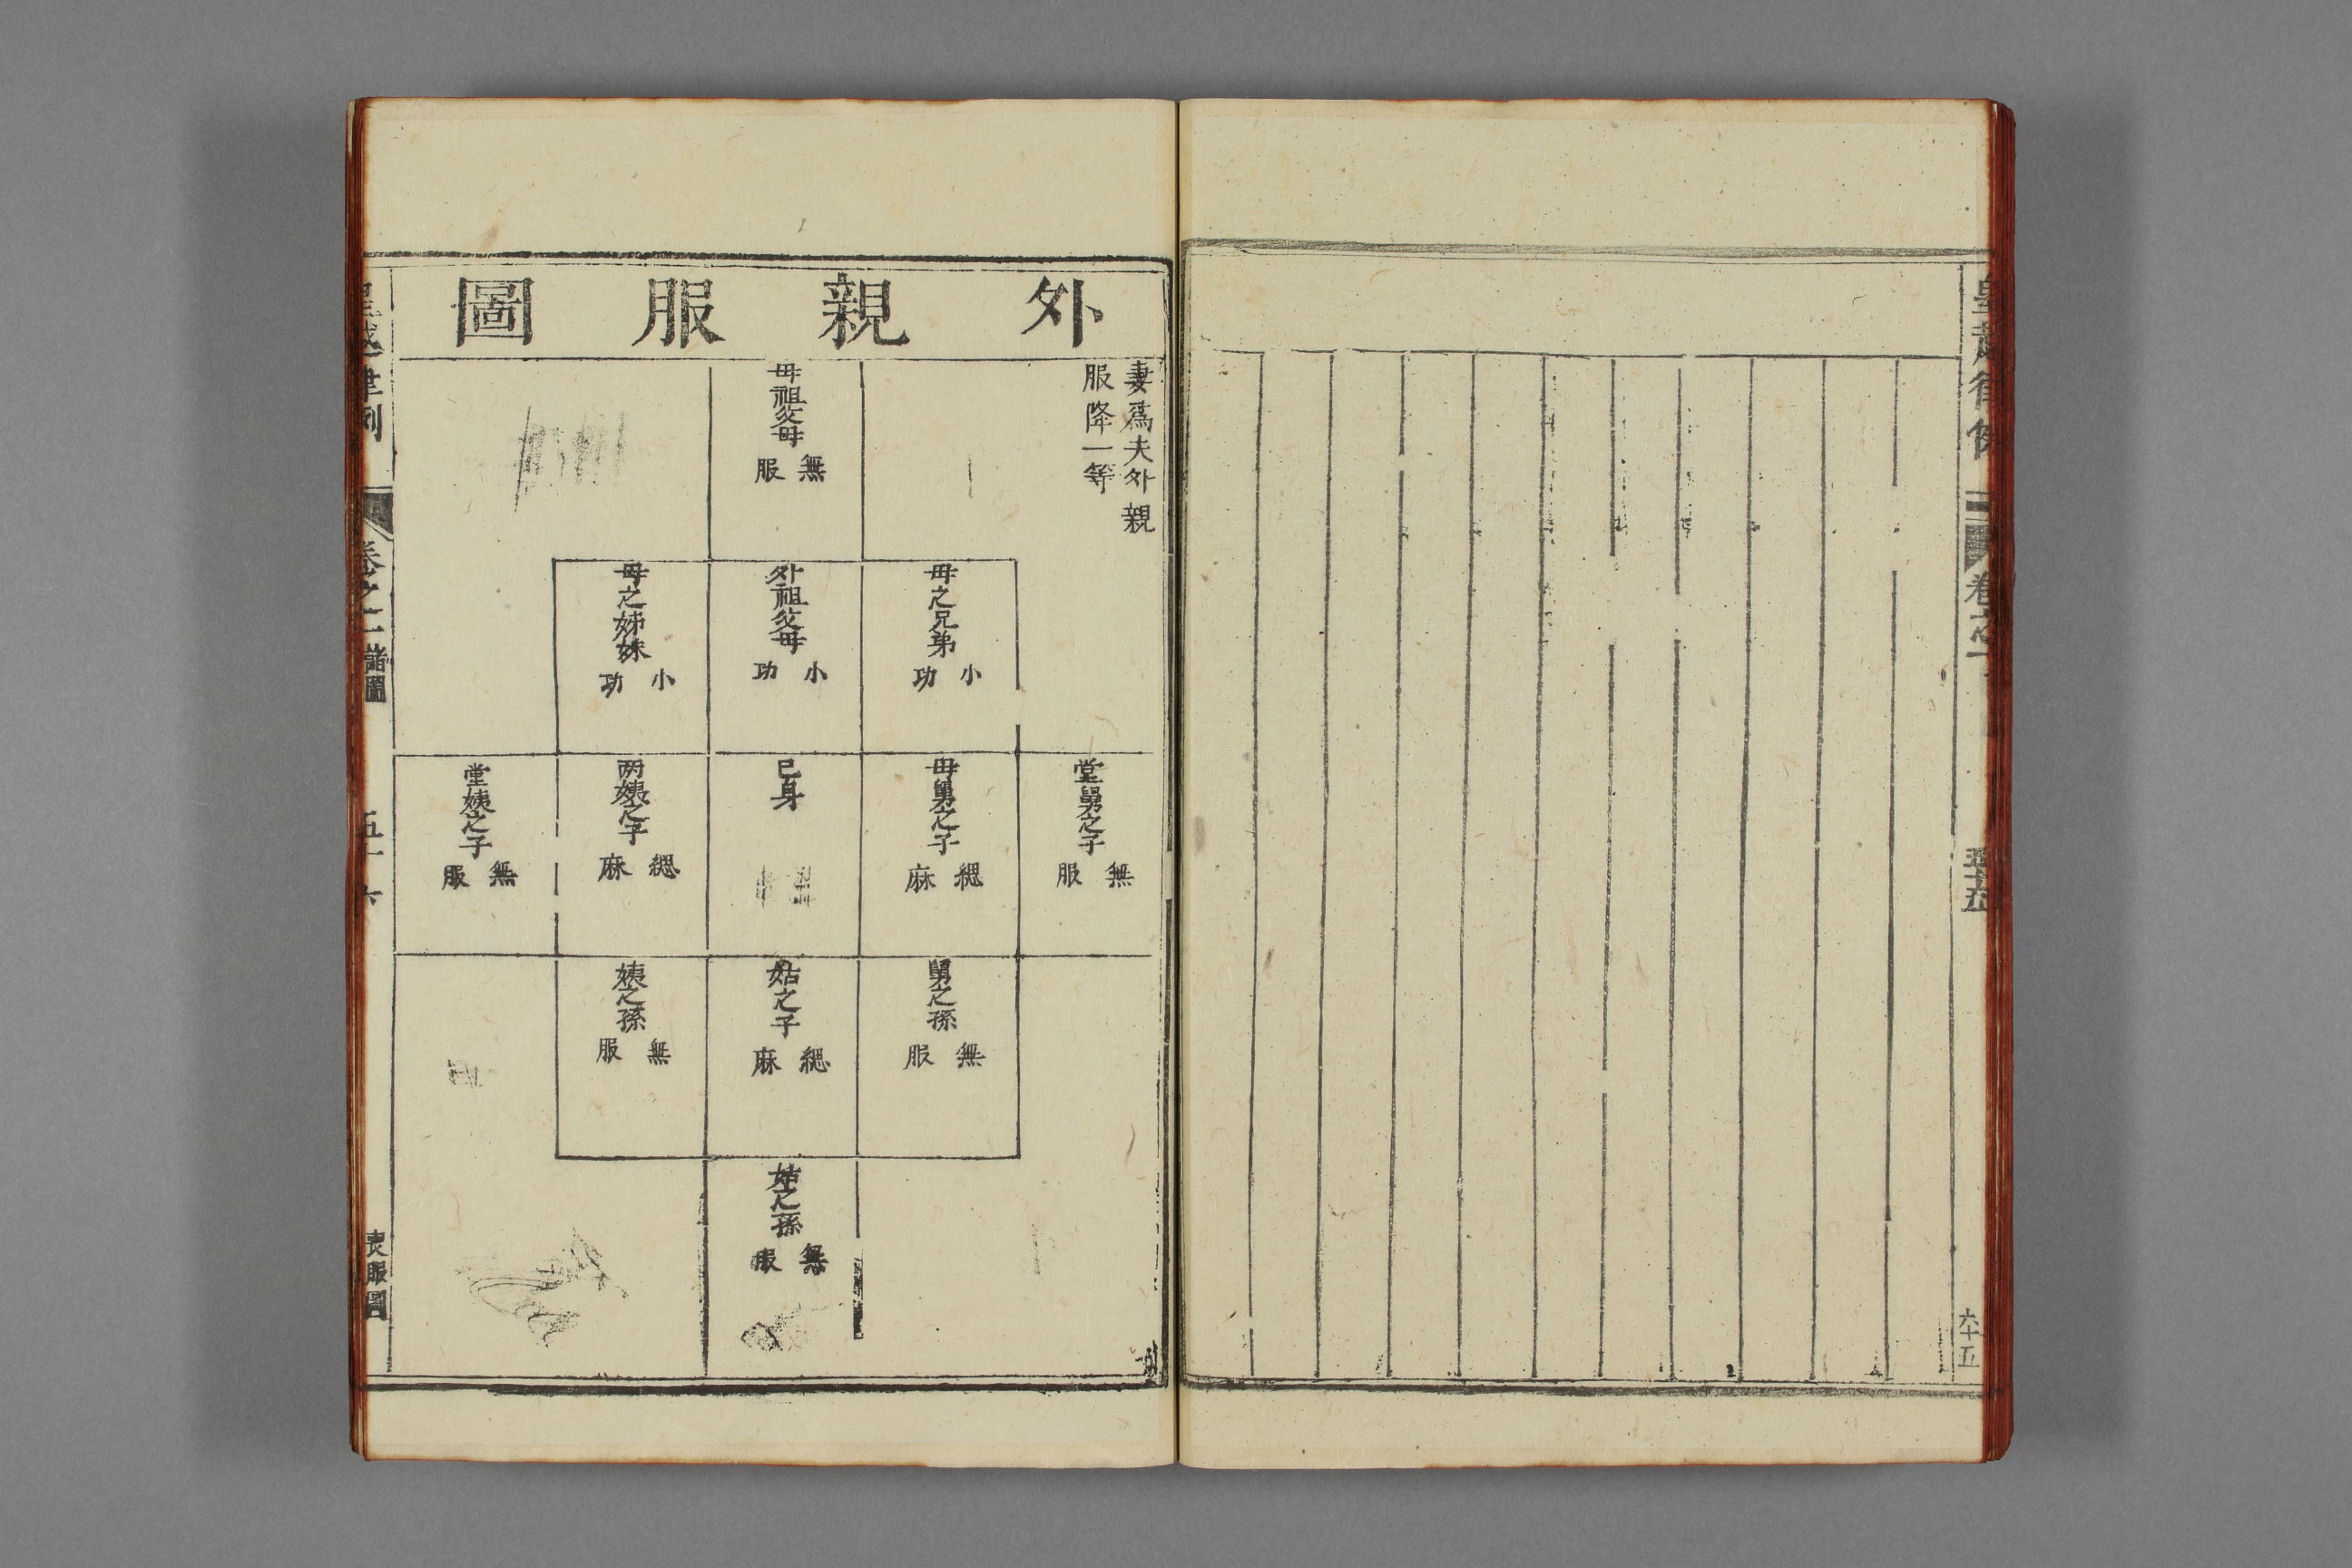 皇越律例
卷之一
五十五
六十五
外親服圖
妻爲夫外親
服降一等
母祖父母
無服
母之兄弟
小功
外祖父母
小功
母之姊妹
小功
堂舅之子
無服
母舅之子
緦麻
己身
两姨之子
緦麻
堂姨之子
無服
舅之孫
無服
姑之子
緦麻
姨之孫
無服
姑之孫
無服
皇越律例
卷之一
諸圖
五十六
喪服圖